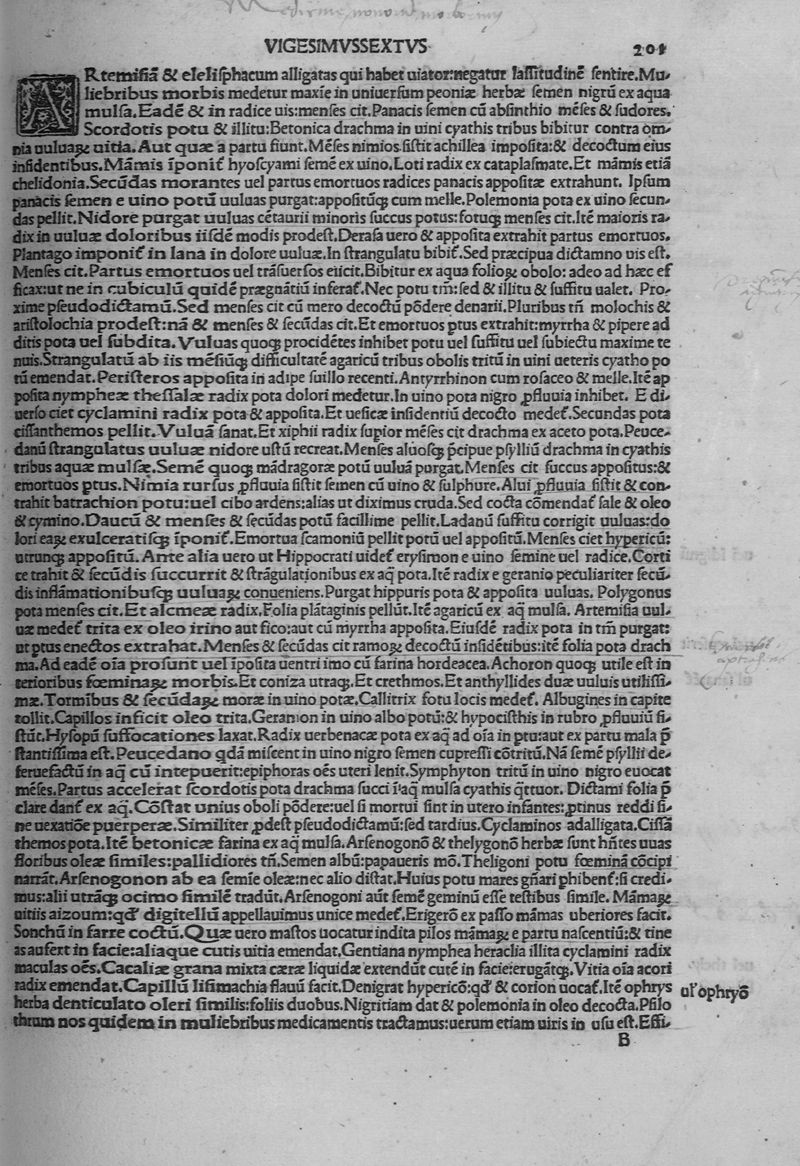 VIGESIMVSSEXTVS 201
ARtemisiā & elelisphacum alligatas qui habet uiator:negatur lassitudinē sentire.Mu-
liebribus morbis medetur maxīe in uniuersum peoniæ herbæ semen nigrū ex aqua
mulsa.Eadē & in radice uis:menses cit.Panacis semen cū absinthio mēses & sudores.
Scordotis potu & illitu:Betonica drachma in uini cyathis tribus bibitur contra om-
nia uuluaꝝ uitia.Aut quæ a partu fiunt.Mēses nimios sistit achillea imposita:& decoctum eius
insidentibus.Māmis īponit̄ hyoscyami semē ex uino.Loti radix ex cataplasmate.Et māmis etiā
chelidonia.Secūdas morantes uel partus emortuos radices panacis appositæ extrahunt. Ipsum
panacis semen e uino potū uuluas purgat:appositūqꝫ cum melle.Polemonia pota ex uino secun-
das pellit.Nidore purgat uuluas cētaurii minoris succus potus:fotuqꝫ menses cit.Itē maioris ra-
dix in uuluæ doloribus iisdē modis prodest.Derasa uero & apposita extrahit partus emortuos.
Plantago imponit̄ in lana in dolore uuluæ.In strangulatu bibit̄.Sed præcipua dictamno uis est.
Menses cit.Partus emortuos uel trāsuersos eiicit.Bibitur ex aqua folioꝝ obolo: adeo ad hæc ef
ficax:ut ne in cubiculū quidē prægnātiū inferat̄.Nec potu tm̄:sed & illitu & suffitu ualet. Pro-
xime pseudodictamū.Sed menses cit cū mero decoctū pōdere denarii.Pluribus tn̄ molochis &
aristolochia prodest:nā & menses & secūdas cit.Et emortuos ptus extrahit:myrrha & pipere ad
ditis pota uel subdita.Vuluas quoqꝫ procidētes inhibet potu uel suffitu uel subiectu maxime te
nuis.Strangulatū ab iis mēsiūqꝫ difficultatē agaricū tribus obolis tritū in uini ueteris cyatho po
tū emendat.Peristeros apposita in adipe suillo recenti.Antyrrhinon cum rosaceo & melle.Itē ap
posita nympheæ thessalæ radix pota dolori medetur.In uino pota nigro ꝓfluuia inhibet. E di-
uerso ciet cyclamini radix pota & apposita.Et uesicæ insidentiū decocto medet̄.Secundas pota
cissanthemos pellit.Vuluā sanat.Et xiphii radix supior mēses cit drachma ex aceto pota.Peuce-
danū strangulatus uuluæ nidore ustū recreat.Menses aluosqꝫ p̄cipue psylliū drachma in cyathis
tribus aquæ mulsæ.Semē quoqꝫ mādragoræ potū uuluā purgat.Menses cit succus appositus:&
emortuos ptus.Nimia rursus ꝓfluuia sistit semen cū uino & sulphure.Alui ꝓfluuia sistit & con-
trahit batrachion potu:uel cibo ardens:alias ut diximus cruda.Sed cocta cōmendat̄ sale & oleo
& cymino.Daucū & menses & secūdas potū facillime pellit.Ladanū suffitu corrigit uuluas:do
lori eaꝝ exulceratisqꝫ īponit̄.Emortua scamoniū pellit potū uel appositū.Menses ciet hypericū:
utrunqꝫ appositū.Ante alia uero ut Hippocrati uidet̄ erysimon e uino semine uel radice.Corti
ce trahit & secūdis succurrit & strāgulationibus ex aq̄ pota.Itē radix e geranio peculiariter secū-
dis inflāmationibusqꝫ uuluaꝝ conueniens.Purgat hippuris pota & apposita uuluas. Polygonus
pota menses cit.Et alcmeæ radix.Folia plātaginis pellūt.Itē agaricū ex aq̄ mulsa. Artemisia uul-
uæ medet̄ trita ex oleo irino aut fico:aut cū myrrha apposita.Eiusdē radix pota in tm̄ purgat:
ut ptus enectos extrahat.Menses & secūdas cit ramoꝝ decoctū insidētibus:itē folia pota drach
ma.Ad eadē oīa prosunt uel īposita uentri imo cū farina hordeacea.Achoron quoqꝫ utile est in
terioribus fœminaꝝ morbis.Et coniza utraqꝫ.Et crethmos.Et anthyllides duæ uuluis utilissi-
mæ.Tormībus & secūdaꝝ moræ in uino potæ.Callitrix fotu locis medet̄. Albugines in capite
tollit.Capillos inficit oleo trita.Geranion in uino albo potū:& hypocisthis in rubro ꝓfluuiū si-
stūt.Hysopū suffocationes laxat.Radix uerbenacæ pota ex aq̄ ad oīa in ptu:aut ex partu mala p̄
stantissima est.Peucedano qdā miscent in uino nigro semen cupressi cōtritū.Nā semē psyllii de-
feruefactū in aq̄ cū intepuerit:epiphoras oēs uteri lenit.Symphyton tritū in uino nigro euocat
mēses.Partus accelerat scordotis pota drachma succi ī aq̄ mulsa cyathis q̄ttuor. Dictami folia p̄
clare dant̄ ex aq̄.Cōstat unius oboli pōdere:uel si mortui sint in utero infantes:ꝓtinus reddi si-
ne uexatiōe puerperæ.Similiter ꝓdest pseudodictamū:sed tardius.Cyclaminos adalligata.Cissā
themos pota.Itē betonicæ farina ex aq̄ mulsa.Arsenogonō & thelygonō herbæ sunt hn̄tes uuas
floribus oleæ similes:pallidiores tn̄.Semen albū:papaueris mō.Theligoni potu fœminā cōcipi
narrāt.Arsenogonon ab ea semīe oleæ:nec alio distat.Huius potu mares gn̄ari phibent̄:si credi-
mus:alii utrāqꝫ ocimo similē tradūt.Arsenogoni aūt semē geminū esse testibus simile. Māmaꝝ
uitiis aizoum:qd̄ digitellū appellauimus unice medet̄.Erigerō ex passo māmas uberiores facit.
Sonchū in farre coctū.Quæ uero mastos uocatur indita pilos māmaꝝ e partu nascentiū:& tine
as aufert in facie:aliaque cutis uitia emendat.Gentiana nymphea heraclia illita cyclamini radix
maculas oēs.Cacaliæ grana mixta cæræ liquidæ extendūt cutē in facie:erugātqꝫ.Vitia oīa acori
radix emendat.Capillū lisimachia flauū facit.Denigrat hypericō:qd̄ & corion uocat̄.Itē ophrys
herba denticulato oleri similis:foliis duobus.Nigritiam dat & polemonia in oleo decocta.Psilo
thrum nos quidem in muliebribus medicamentis tractamus:uerum etiam uiris in usu est.Effi-
ul' ophryō
B